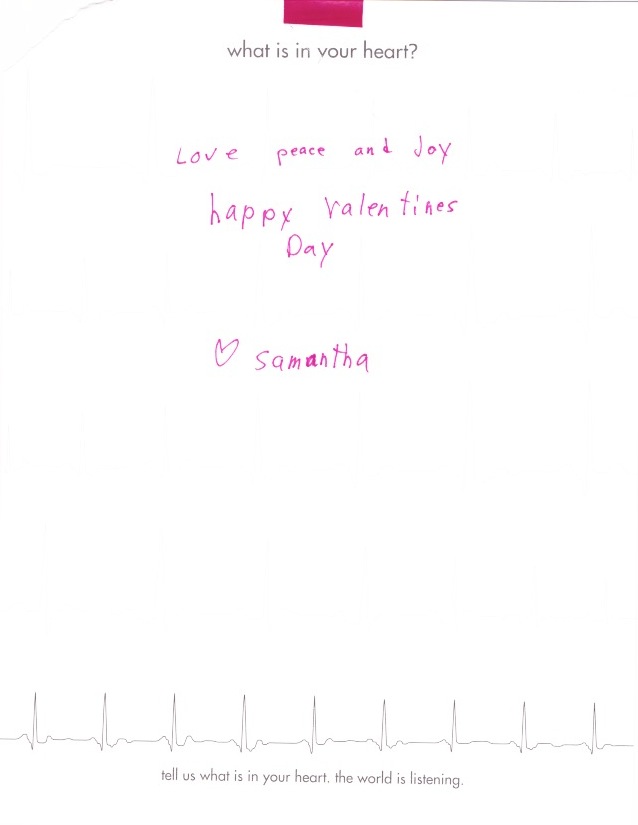 what is in your heart?
Love peace and Joy
happy Valentines
Day
♡ samantha
tell us what is in your heart. the world is listening.